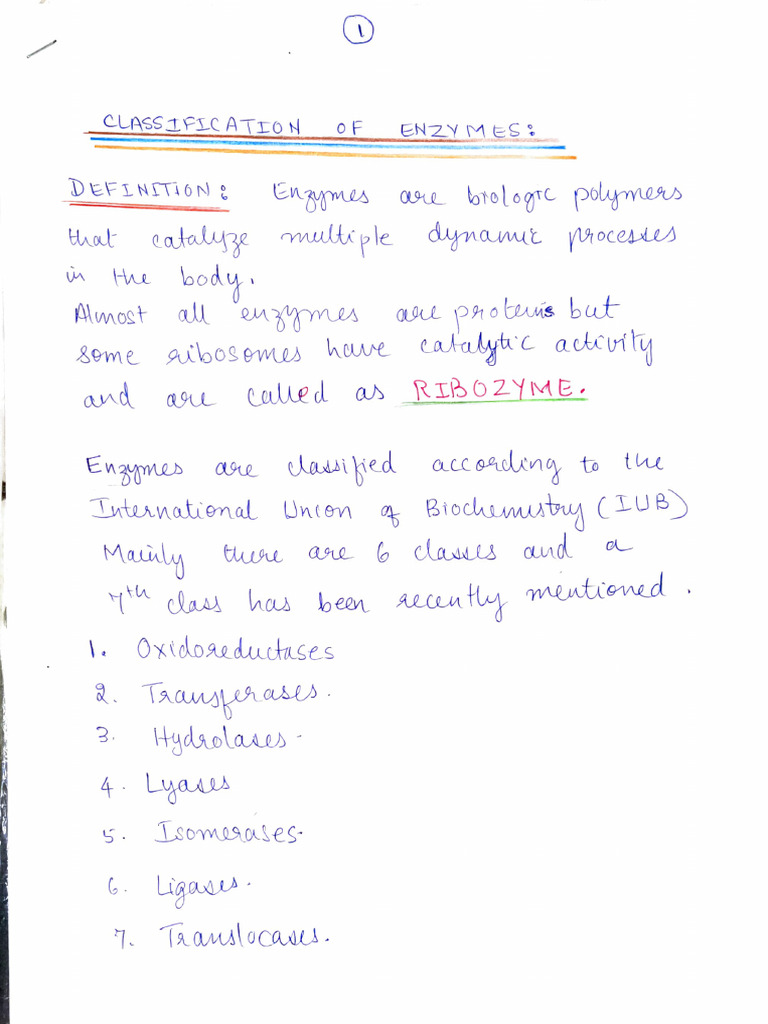 1
CLASSIFICATION OF ENZYMES:
DEFINITION: Enzymes are biologic polymers
that catalyze multiple dynamic processes
in the body.
Almost all enzymes are proteins but
some ribosomes have catalytic activity
and are called as RIBOZYME.
Enzymes are classified according to the
International Union of Biochemistry (IUB)
Mainly there are 6 classes and a
7th class has been recently mentioned.
1. Oxidoreductases
2. Transferases.
3. Hydrolases-
4. Lyases
5. Isomerases.
6. Ligases.
7. Translocases.